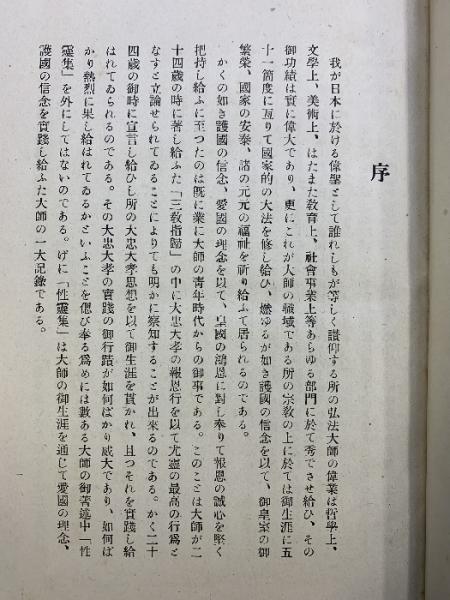 序
我が日本に於ける偉聖として誰れしもが等しく讃仰する所の弘法大師の偉業は哲學上、
文學上、美術上、はたまた教育上、社會事業上等あらゆる部門に於て秀でさせ給ひ、その
御功績は實に偉大であり、更にこれが大師の職域である所の宗教の上に於ては御生涯に五
十一箇度に亙りて國家的の大法を修し給ひ、燃ゆるが如き護國の信念を以て、御皇室の御
繁榮、國家の安泰、諸の元元の福祉を祈り給ふて居られるのである。
かくの如き護國の信念、愛國の理念を以て、皇國の鴻恩に對し奉りて報恩の誠心を堅く
把持し給ふに至つたのは既に業に大師の青年時代からの御事である。このことは大師が二
十四歳の時に著し給ふた「三教指歸」の中に大忠大孝の報恩行を以て尤靈の最高の行爲と
なすと立論せられてゐることによりても明かに察知することが出來るのである。かく二十
四歳の御時に宣言し給ひし所の大忠大孝思想を以て御生涯を貫かれ、且つそれを實踐し給
はれてゐられるのである。その大忠大孝の實踐の御行蹟が如何ばかり威大であり、如何ば
かり熱烈に果し給はれてゐるかといふことを偲び奉る爲めには數ある大師の御著述中「性
靈集」を外にしてはないのである。げに「性靈集」は大師の御生涯を通じて愛國の理念、
護國の信念を實踐し給ふた大師の一大記錄である。
一